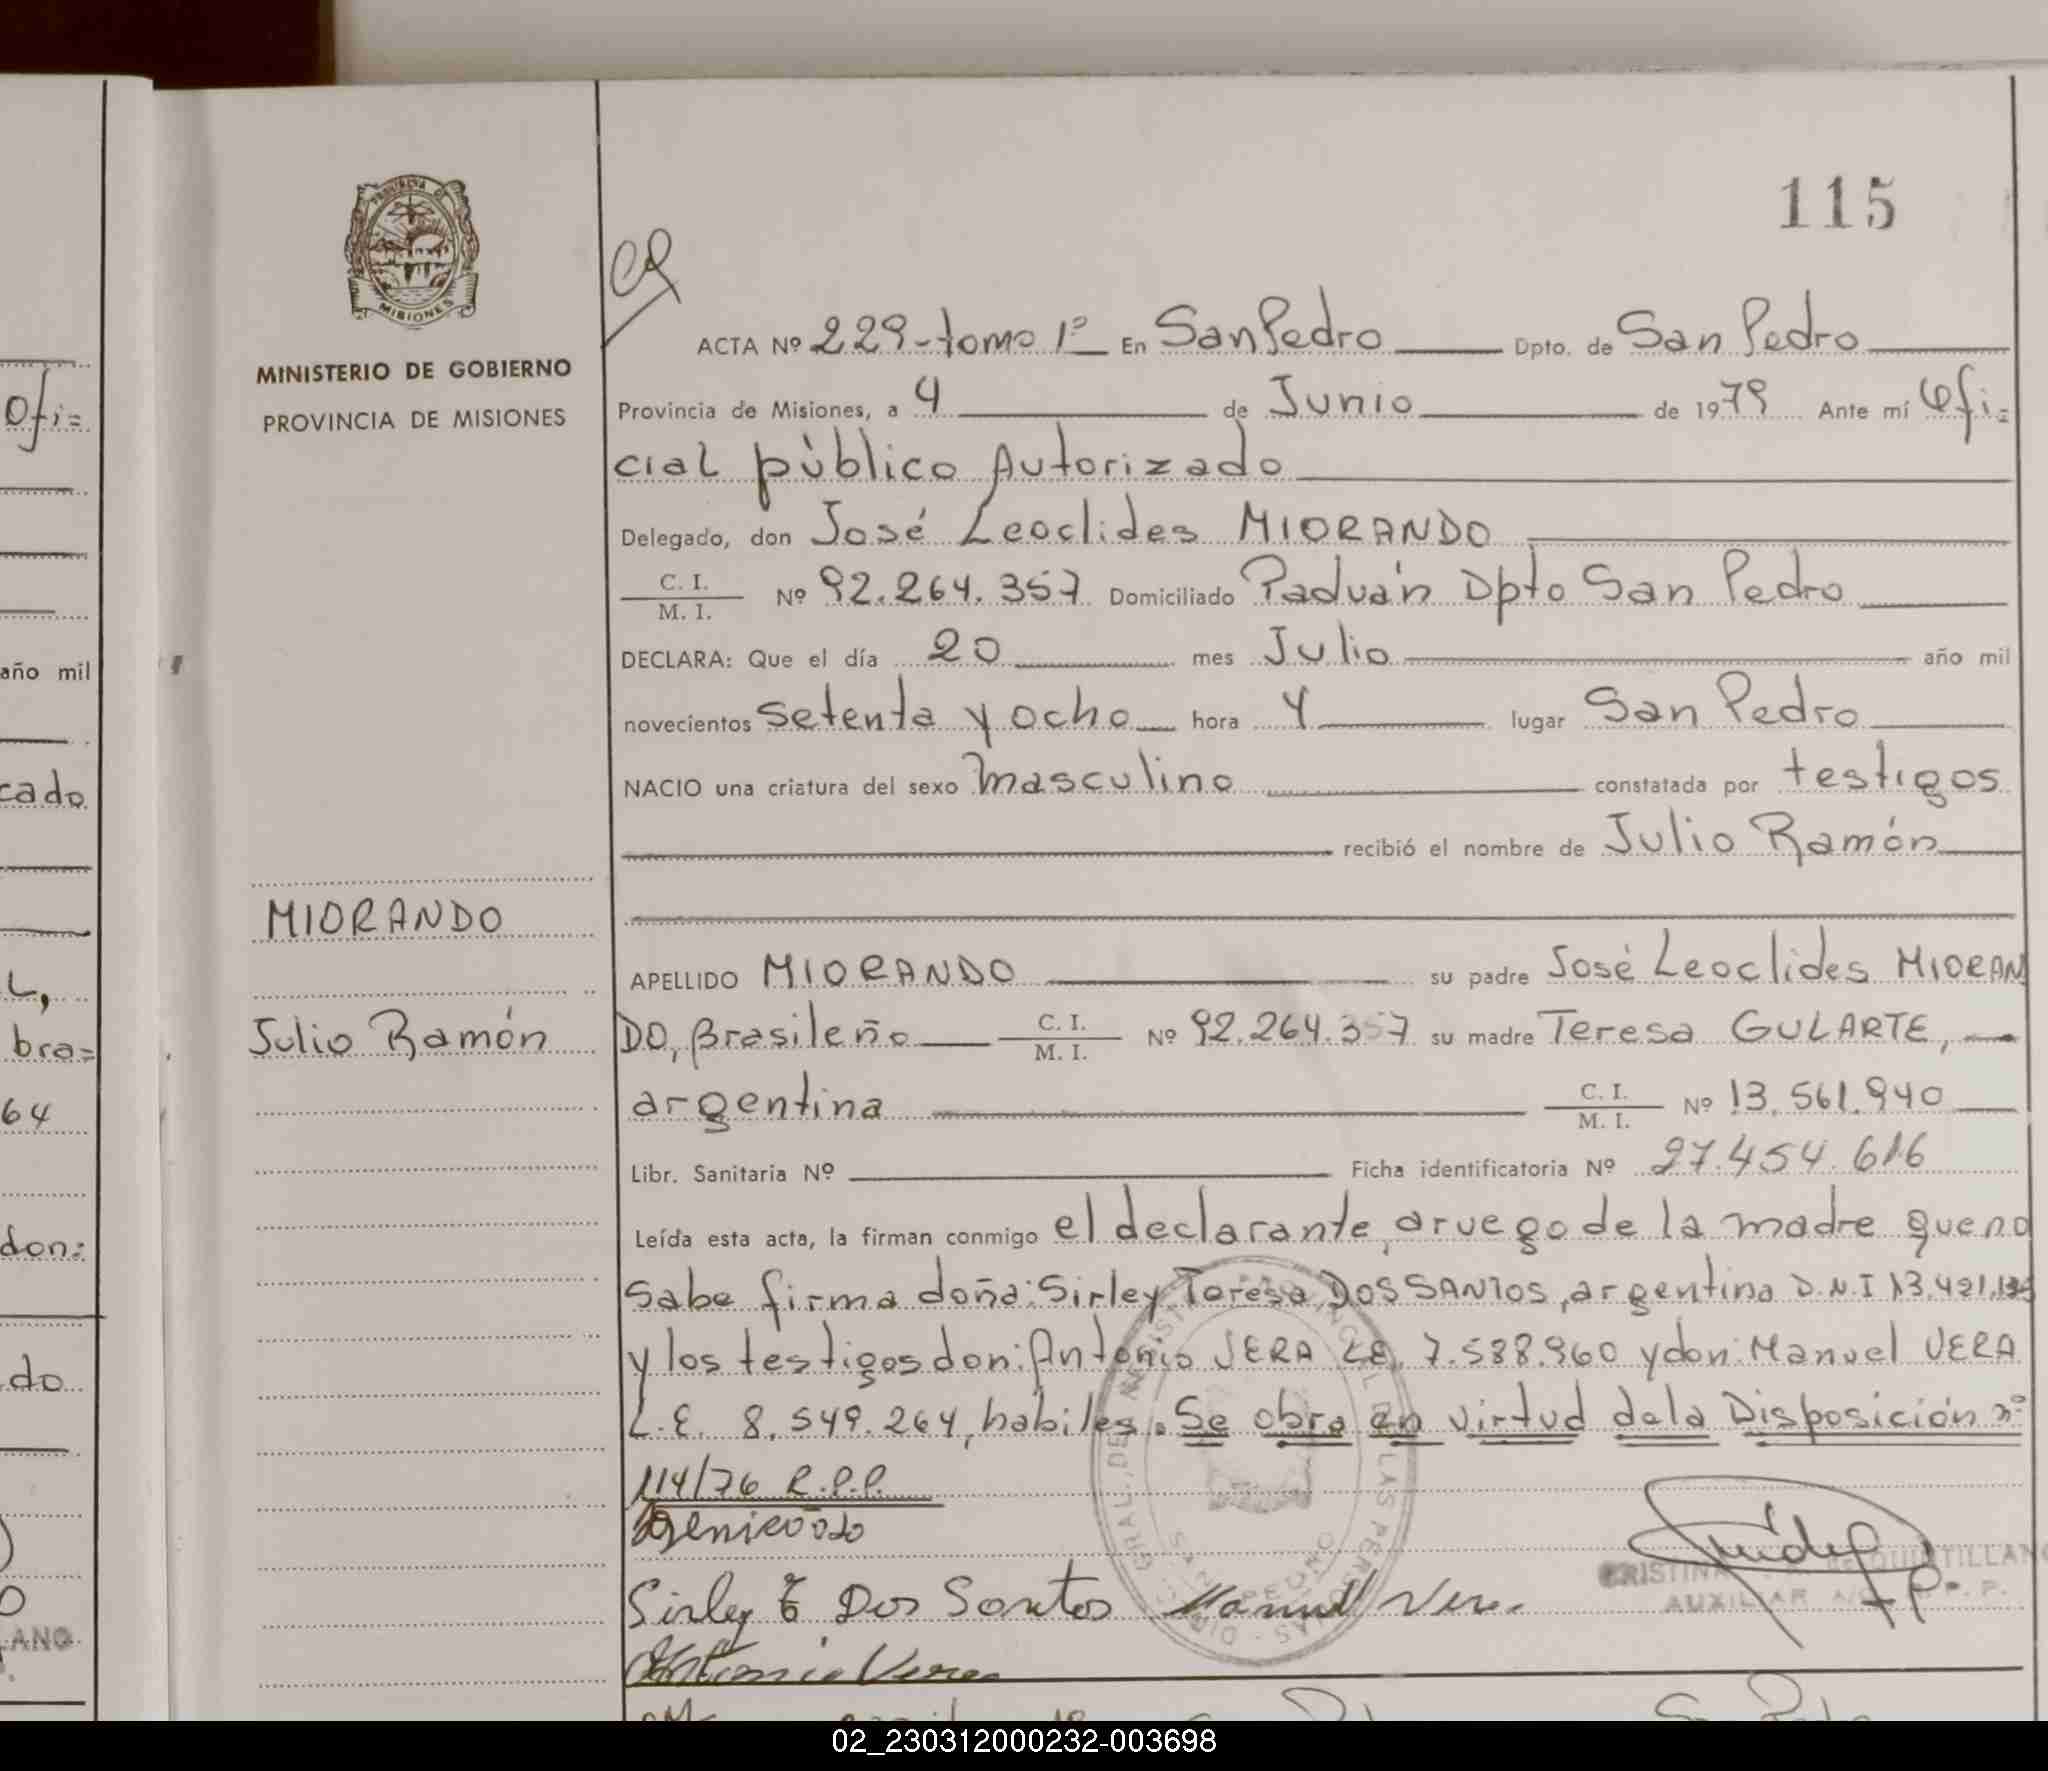 115
MINISTERIO DE GOBIERNO
PROVINCIA DE MISIONES
MISIONES
ACTA Nº 229-tomo 1º En San Pedro Dpto. de San Pedro
Provincia de Misiones, a 4 de Junio de 1979 Ante mí Ofi=
cial público Autorizado
Delegado, don José Leoclides MIORANDO
C. I. / M. I. Nº 92.264.357 Domiciliado Paduán Dpto San Pedro
DECLARA: Que el día 20 mes Julio año mil
novecientos setenta y ocho hora 4 lugar San Pedro
NACIO una criatura del sexo masculino constatada por testigos
recibió el nombre de Julio Ramón
MIORANDO
Julio Ramón
APELLIDO MIORANDO su padre José Leoclides MIORAN
DO, Brasileño C. I. / M. I. Nº 92.264.357 su madre Teresa GULARTE,
argentina C. I. / M. I. Nº 13.561.940
Libr. Sanitaria Nº Ficha identificatoria Nº 27.454.616
Leída esta acta, la firman conmigo el declarante, a ruego de la madre que no
sabe firma doña: Sirley Teresa DOS SANTOS, argentina D.N.I 13.421.
y los testigos don: Antonio VERA L.E. 7.588.960 y don: Manuel VERA
L.E. 8.549.264, habiles. Se obra en virtud de la Disposición nº
114/76 R.P.P.
Sirley T Dos Santos Manuel Vera
Antonio Vera
CRISTINA QUINTILLAN
AUXILIAR
Ofi=
año mil
cado
L,
bra=
64
don:
do
ANO
02_230312000232-003698